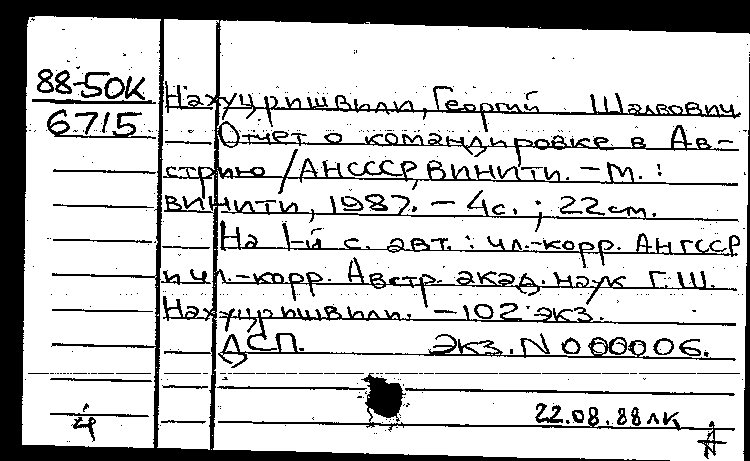 88-50К
6715
Нахуцришвили, Георгий Шалвович.
Отчет о командировке в Ав-
стрию / АН СССР, ВИНИТИ. - М. :
ВИНИТИ, 1987. - 4с. ; 22 см.
На 1-й с. авт. : чл.-корр. АН ГССР
и чл.-корр. Австр. акад. наук Г.Ш.
Нахуцришвили. - 102 экз.
ДСП. Экз. N 000006.
22.08.88 лк
ч